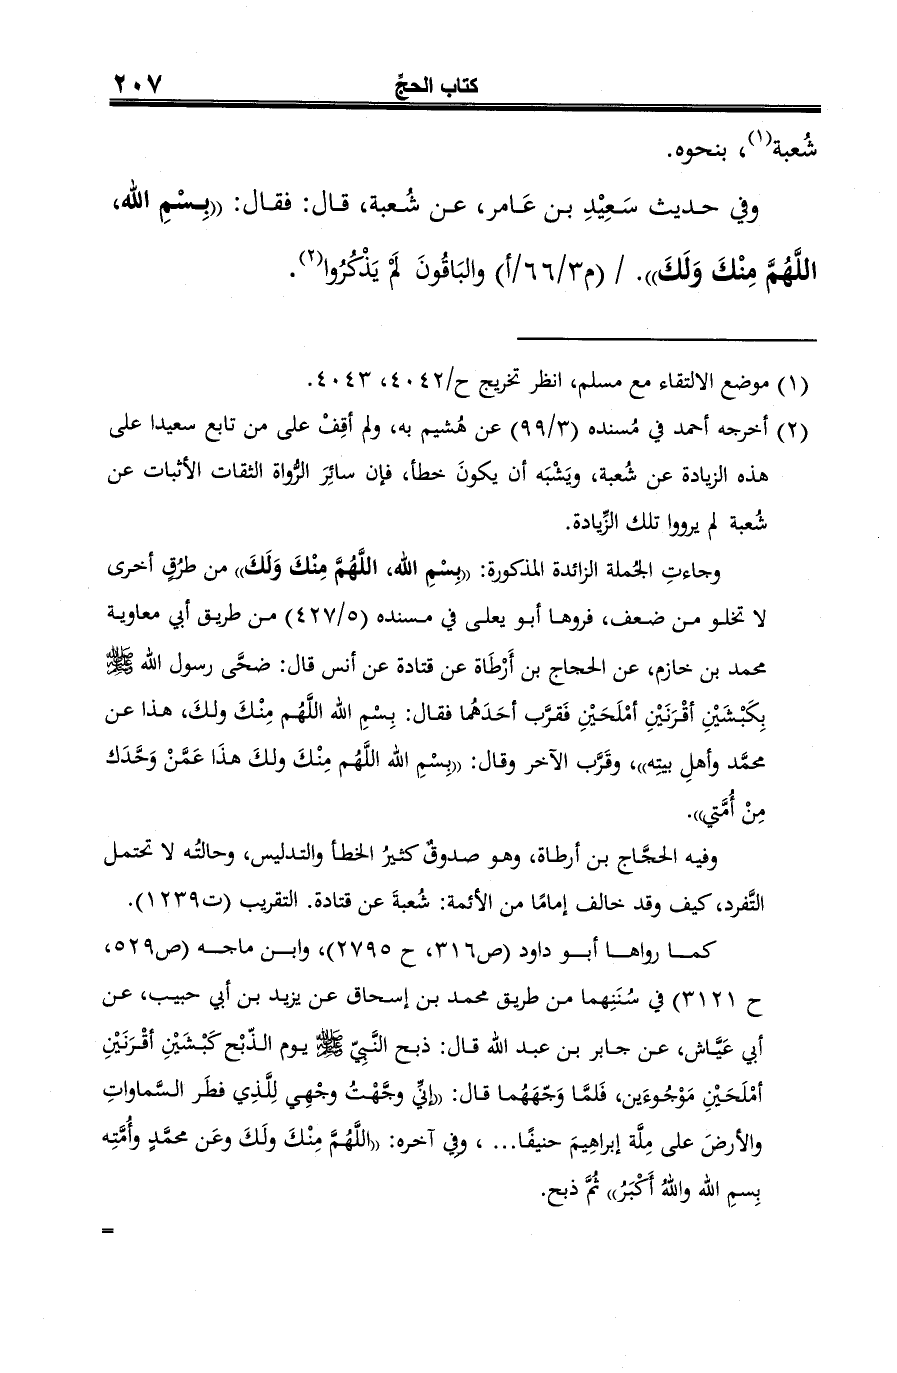 كتاب الحجِّ
٢٠٧
شُعبة(١)، بنحوه.
وفي حديث سَعِيْدِ بن عَامر، عن شُعبة، قال: فقال: ((بِسْمِ الله،
اللَّهُمَّ مِنْكَ وَلَكَ)). / (م٦٦/٣/أ) والبَاقُونَ لَمْ يَذْكُرُوا(٢).
(١) موضع الالتقاء مع مسلم، انظر تخريج ح/٤٠٤٢، ٤٠٤٣.
(٢) أخرجه أحمد في مُسنده (٩٩/٣) عن هُشيم به، ولم أقِفْ على من تابع سعيدا على
هذه الزيادة عن شُعبة، ويَشْبَه أن يكونَ خطأ، فإن سائِرَ الرُّواة الثقات الأثبات عن
شُعبة لم يرووا تلك الزِّيادة.
وجاءتِ الجُملة الزائدة المذكورة: ((بِسْمِ الله، اللَّهُمَّ مِنْكَ وَلَكَ)) من طرُقٍ أخرى
لا تخلو من ضعف، فروها أبو يعلى في مسنده (٤٢٧/٥) من طريق أبي معاوية
محمد بن خازم، عن الحجاج بن أَرْطَاة عن قتادة عن أنس قال: ضحَّى رسول الله ﷺ
بِكَبْشَيْنِ أقْرَنَيْنِ أمْلَحَيْنِ فَقَرَّب أحدَهُما فقال: بِسْمِ الله اللَّهُم مِنْكَ ولكَ، هذا عن
محمَّد وأهلِ بيتِه))، وقَرَّب الآخر وقال: ((بِسْمِ الله اللَّهُم مِنْكَ ولكَ هذَا عَمَّنْ وَحَّدَكَ
مِنْ أُمَّتي)).
وفيه الحجَّاج بن أرطاة، وهو صدوقٌ كثيرُ الخطأ والتدليس، وحالتُه لا تحتمل
التَّفرد، كيف وقد خالف إمامًا من الأئمة: شُعبةَ عن قتادة. التقريب (ت١٢٣٩).
كما رواها أبو داود (ص٣١٦، ح ٢٧٩٥)، وابن ماجه (ص٥٢٩،
ح ٣١٢١) في سُنَنِهما من طريق محمد بن إسحاق عن يزيد بن أبي حبيب، عن
أبي عَيَّاش، عن جابر بن عبد الله قال: ذبح النَّبيّ ﷺ يوم الذّبْح كَبْشَيْنِ أقْرَنَيْنِ
أمْلَحَيْنِ مَوْجُوءَين، فَلمَّا وَجّهَهُما قال: ((إنيِّ وجَّهْتُ وجْهِي لِلَّذِي فطَر السَّماواتِ
والأرضَ على مِلّة إبراهِيمَ حنيفًا... ، وفي آخره: ((اللَّهُمَّ مِنْكَ ولَكَ وعَن محمَّدٍ وأُمَّتِه
بِسمِ الله واللهُ أَكْبَرُ)) ثُمَّ ذبح.
=